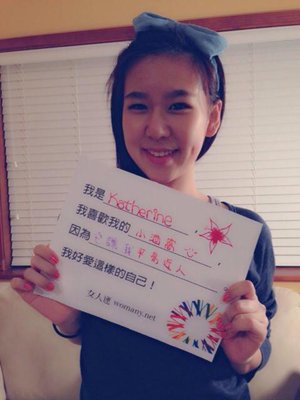 我是 Katherine ,
我喜歡我的 小酒窩 ,
因為 它讓我平易近人 ,
我好愛這樣的自己!
女人迷 womany.net